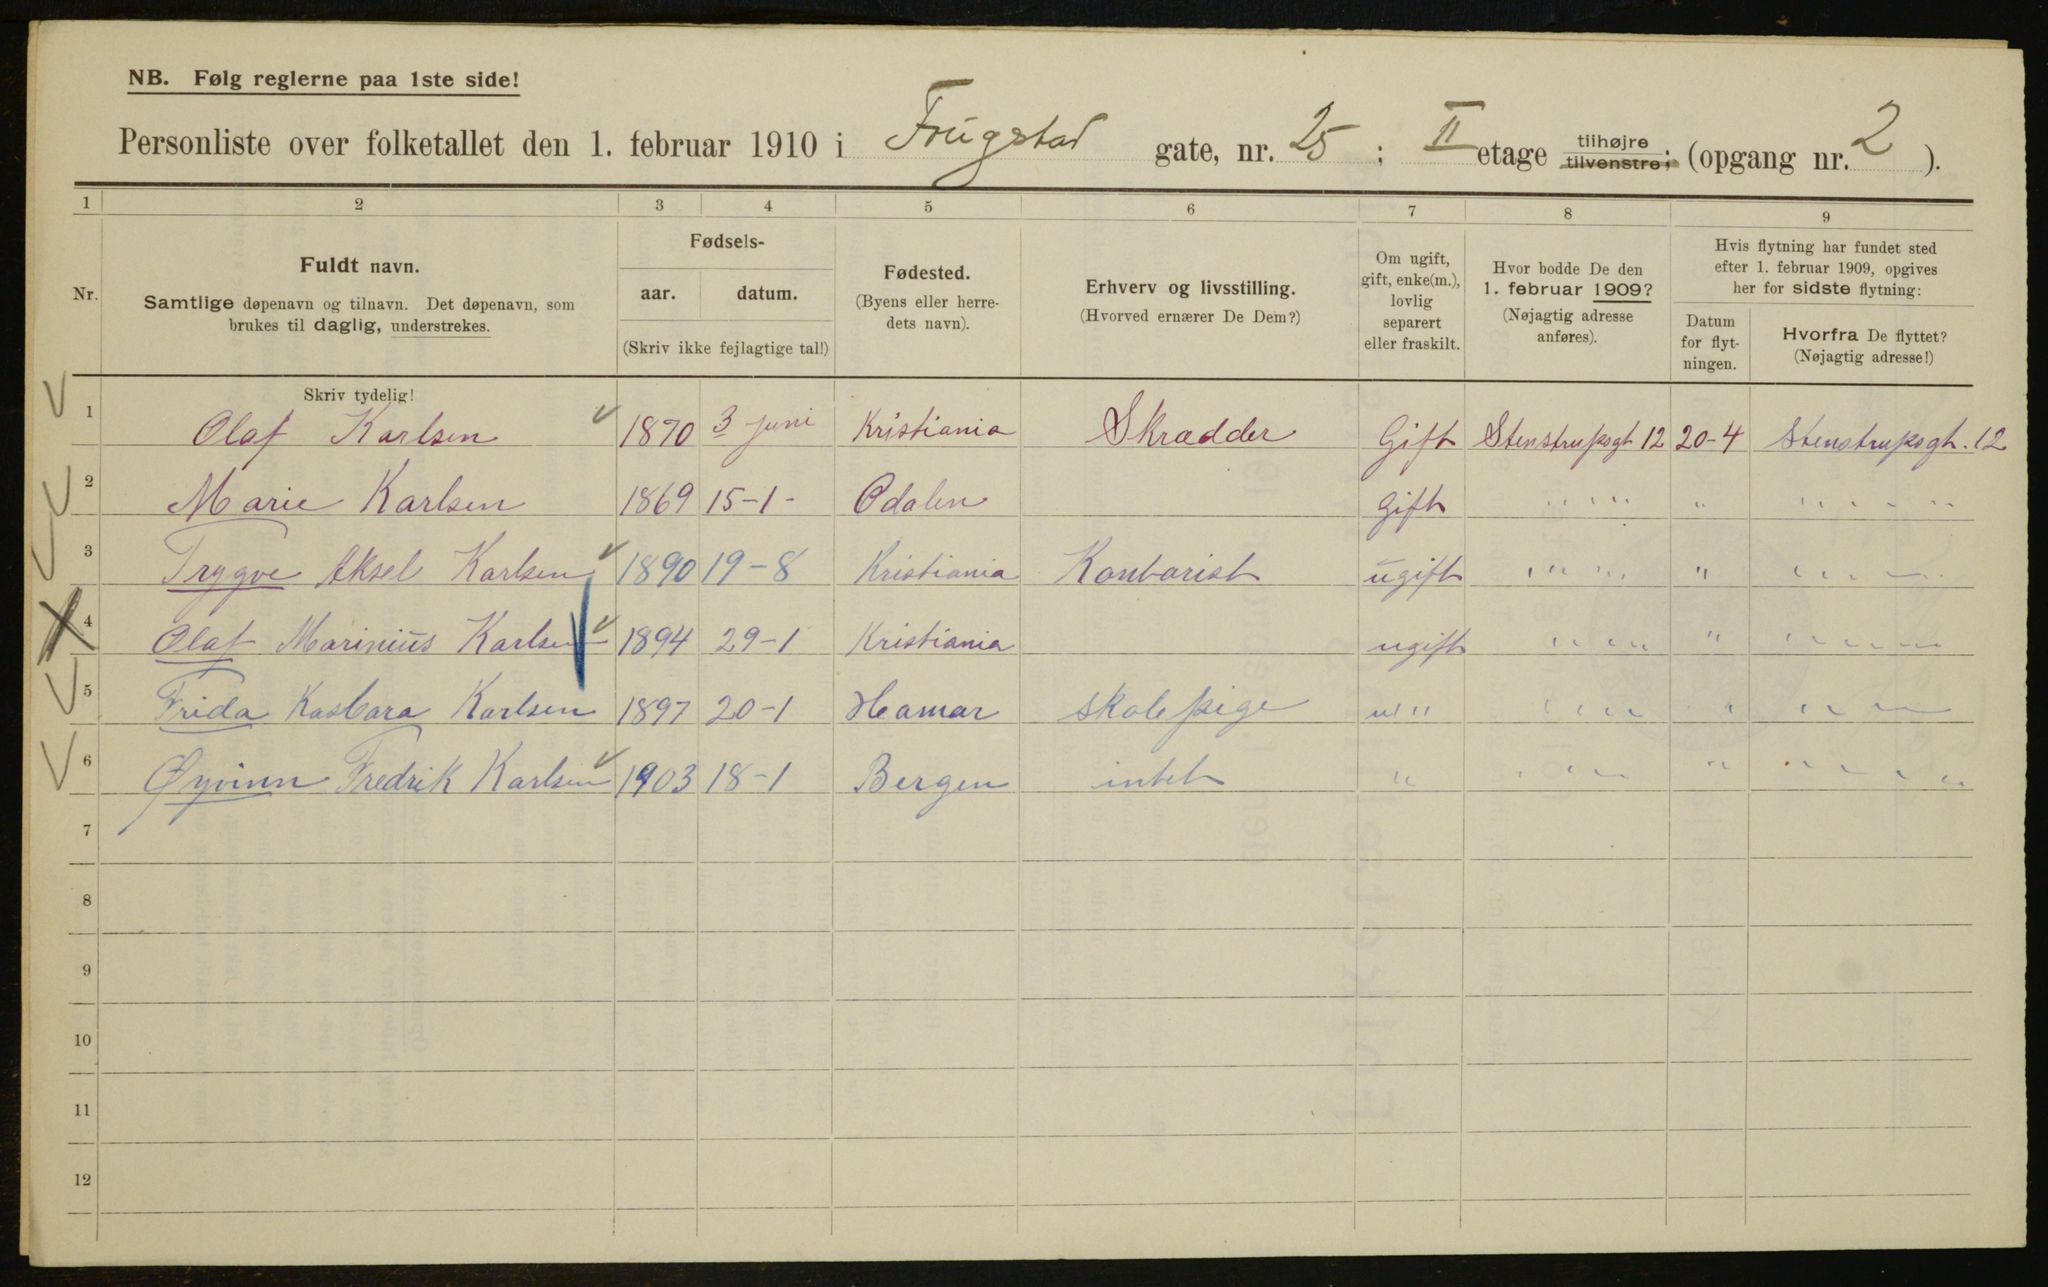 NB. Følg reglerne paa 1ste side!
Personliste over folketallet den 1. februar 1910 i Frugstad gate, nr. 25 ; II etage tilhøjre tilvenstre; (opgang nr. 2 ).
1 2 3 4 5 6 7 8 9
Nr. Fuldt navn. Samtlige døpenavn og tilnavn. Det døpenavn, som brukes til daglig, understrekes.
Fødsels- aar. datum. (Skriv ikke fejlagtige tal!)
Fødested. (Byens eller herredets navn).
Erhverv og livsstilling. (Hvorved ernærer De Dem?)
Om ugift, gift, enke(m.), lovlig separert eller fraskilt.
Hvor bodde De den 1. februar 1909? (Nøjagtig adresse anføres).
Hvis flytning har fundet sted efter 1. februar 1909, opgives her for sidste flytning:
Datum for flytningen. Hvorfra De flyttet? (Nøjagtig adresse!)
Skriv tydelig!
1 Olaf Karlsen 1870 3 juni Kristiania Skrædder Gift Stenstrupsgt 12 20-4 Stenstrupsgt. 12
2 Marie Karlsen 1869 15-1- Odalen Gift " " " " " " " " "
3 Trygve Aksel Karlsen 1890 19-8 Kristiania Kontorist ugift " " " " " " " " "
4 Olaf Marinius Karlsen 1894 29-1 Kristiania ugift " " " " " " " " "
5 Frida Karlsen 1897 20-1 Hamar skolepige u " " " " " " " " " "
6 Øyvinn Fredrik Karlsen 1903 18-1 Bergen intet " " " " " " " " " "
7
8
9
10
11
12